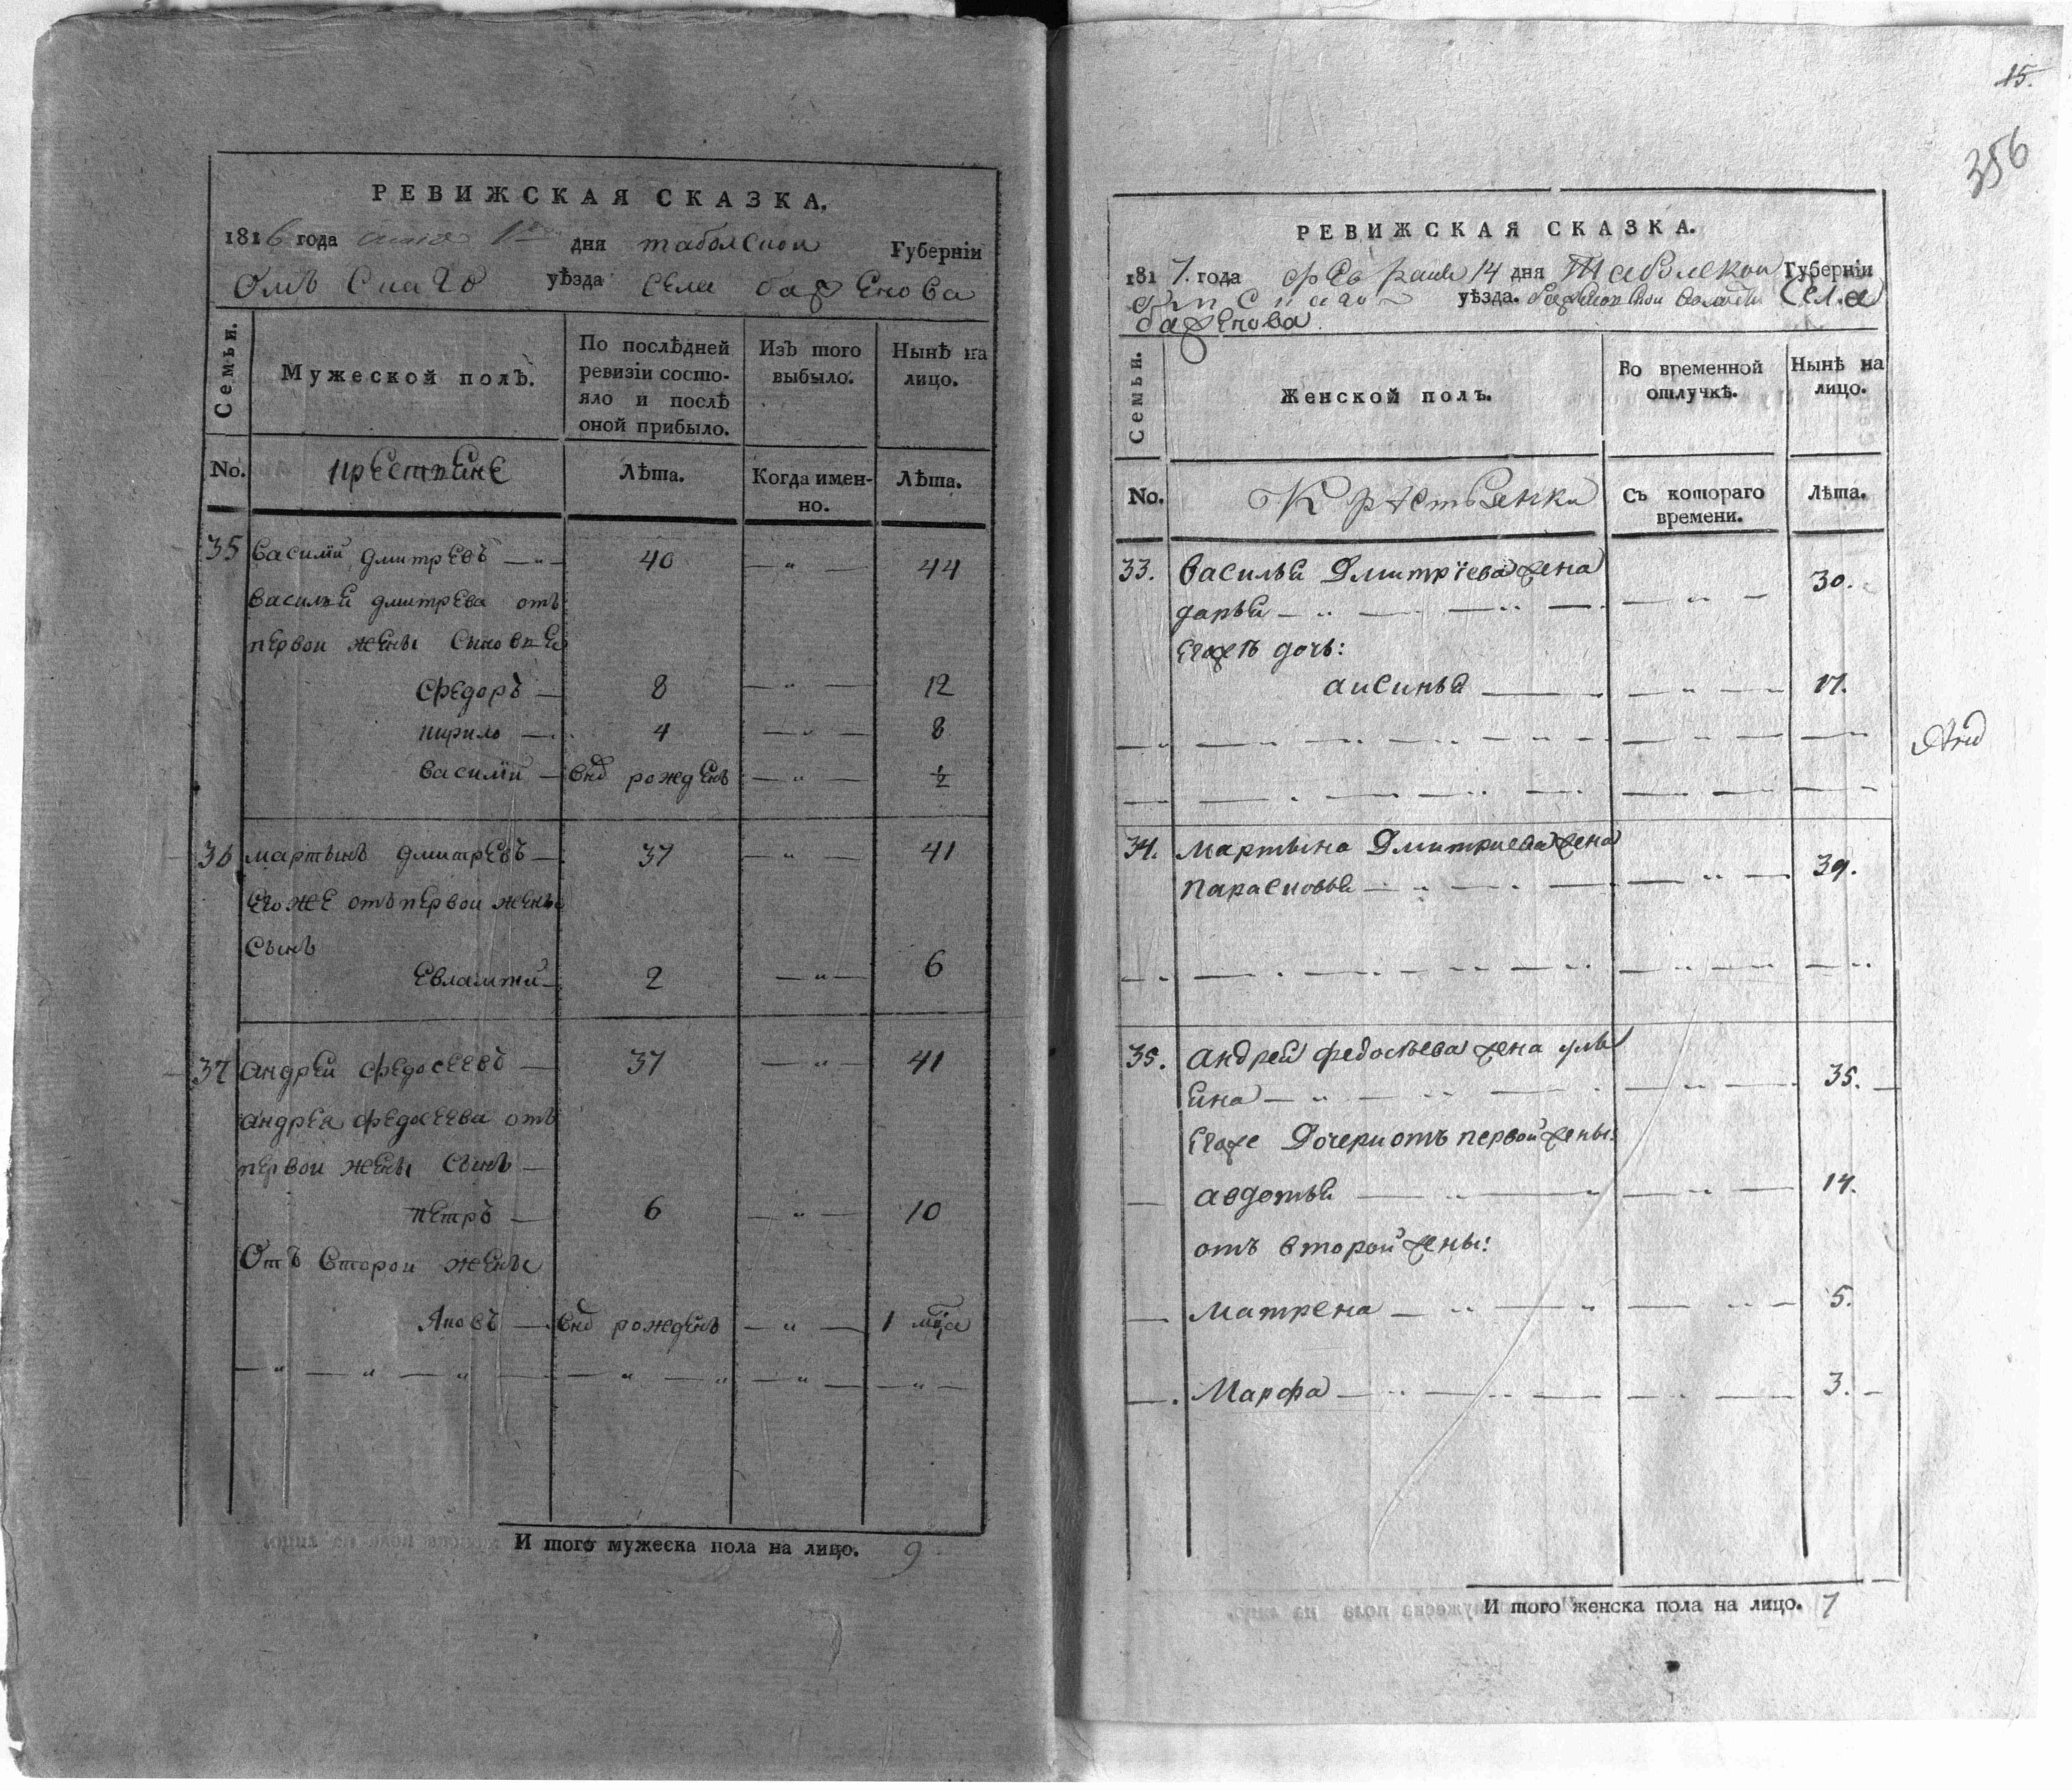 РЕВИЖСКАЯ СКАЗКА.
1816 года дня таболской Губерніи
Омъскаго уѣзда села баженова
Семьи.
Мужеской полъ.
По послѣдней ревизіи состояло и послѣ оной прибыло.
Изъ того выбыло.
Нынѣ на лицо.
No.
крестьяне
Лѣта.
Когда именно.
Лѣта.
35 василий дмитревъ — 40 — " — 44
василья дмитрева отъ
первои жены сыновья
Федоръ — 8 — " — 12
кирило — 4 — " — 8
василий — рожденъ — " — ½
36 мартынъ дмитревъ — 37 — " — 41
Его же отъ первои жены
сынъ
Евлампий — 2 — " — 6
37 андреи федосеевъ — 37 — " — 41
андрея федосеева отъ
первои жены сынъ —
петръ — 6 — " — 10
Отъ второи жены
Яковъ — рожденъ — " — 1 мца
И того мужеска пола на лицо. 9
15.
356
РЕВИЖСКАЯ СКАЗКА.
1817. года февраля 14 дня Таболскои Губерніи
Омскаго уѣзда. села
баженова
Семьи.
Женской полъ.
Во временной отлучкѣ.
Нынѣ на лицо.
No.
Крестьянки
Съ котораго времени.
Лѣта.
33. василья Дмитріева жена
дарья — " — 30.
Егожъ дочь:
аксинья — " — 17.
34. мартына Дмитриева жена
парасковья — " — 39.
35. андрея федосѣева жена улья
яна — " — 35.
Егоже Дочери отъ первой жены:
авдотья — " — 14.
отъ второй жены:
Матрена — " — 5.
Марфа — " — 3.
И того женска пола на лицо. 7